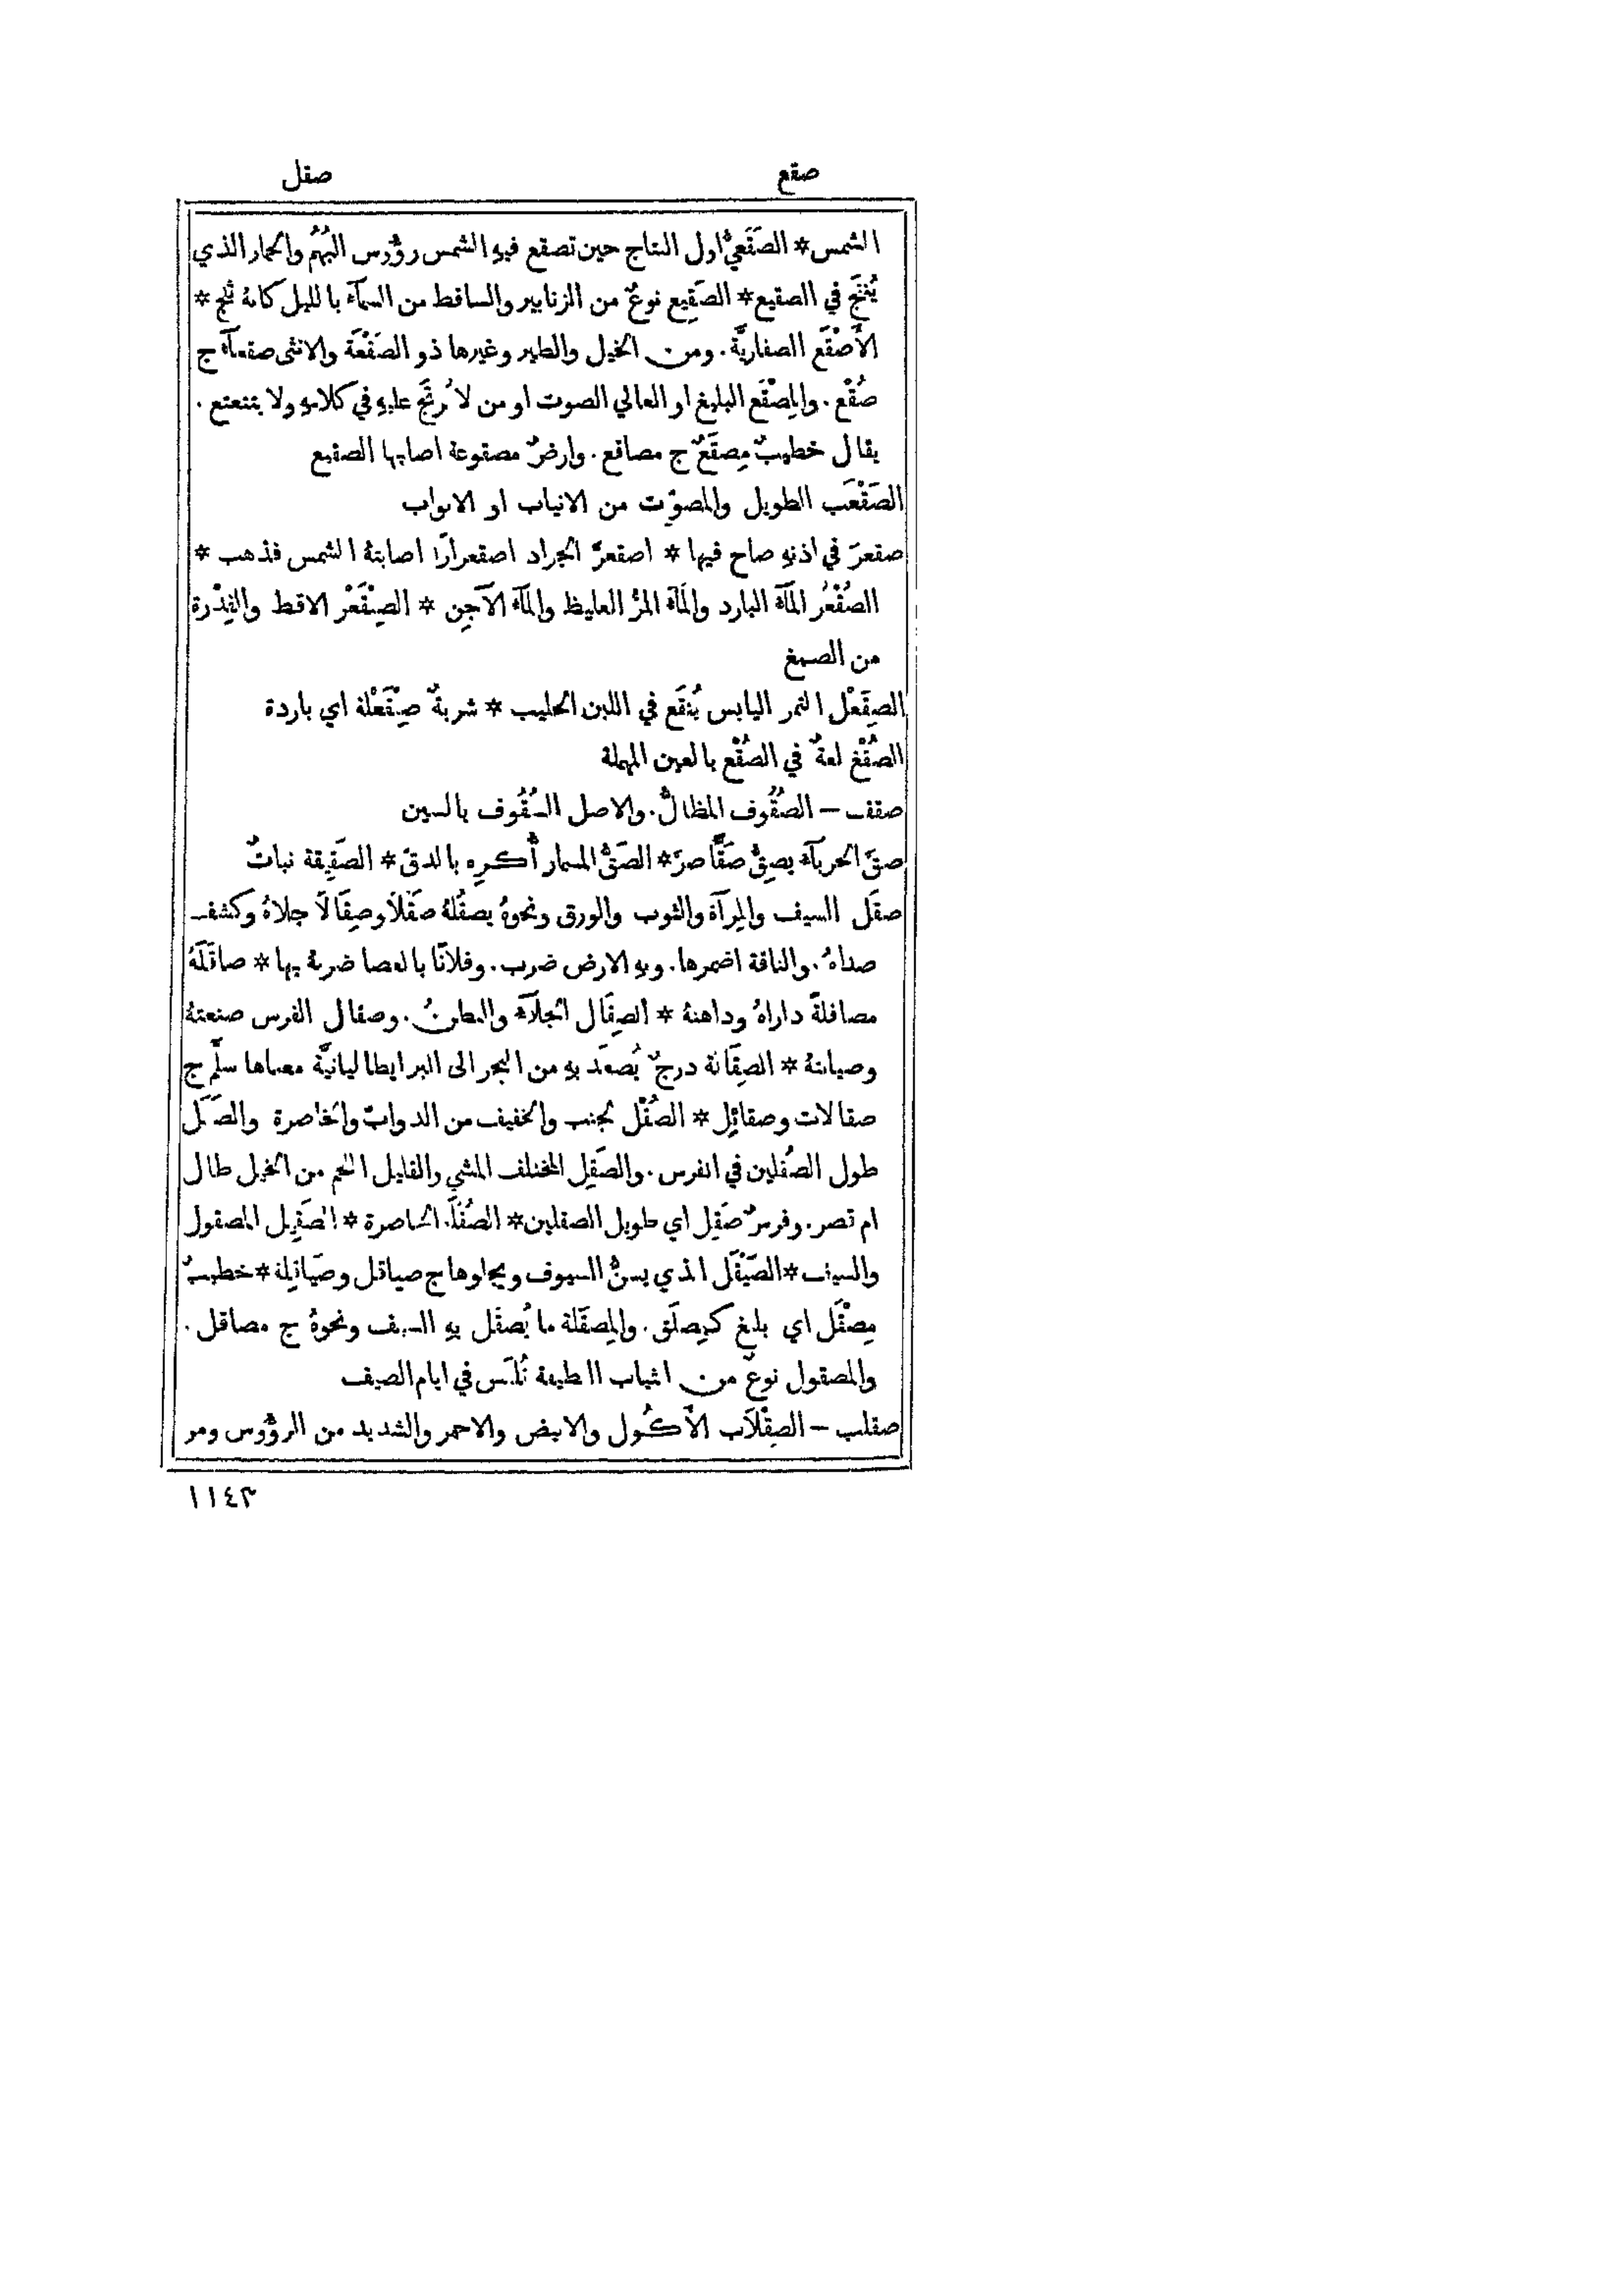 صقع صقل
الشمس * الصَقَعيُّ اول النتاج حين تصقع فيهِ الشمس رؤُوس البُهُم والحمار الذي
يُنتَج في الصقيع * الصَقِيع نوعٌ من الزنابير والساقط من السمآء بالليل كانهُ ثلج *
الأَصْقَع الصفاريَّة . ومن الخيل والطير وغيرها ذو الصَقْعَة والانثى صقعآء ج
صُقْع . والمِصْقَع البليغ او العالي الصوت او من لا يُرتَج عليهِ في كلامهِ ولا يتتعتع .
يقال خطيبٌ مِصقَعٌ ج مصاقع . وارضٌ مصقوعة اصابها الصقيع
الصَقْعَب الطويل والمصوّت من الانياب او الابواب
صقعرَ في اذنهِ صاح فيها * اصقعرَّ الجراد اصقعرارًا اصابتهُ الشمس فذهب *
الصُقْعُر المآء البارد والمآء المرّ الغليظ والمآء الآجِن * الصِنْقَعْر الاقط والفِدْرة
من الصمغ
الصِقَعْل التمر اليابس يُنقَع في اللبن الحليب * شربةٌ صِنْقَعْلة اي باردة
الصُقْغ لغةٌ في الصُقْع بالعين المهملة
صقف – الصُقُوف المظالّ . والاصل السُقُوف بالسين
صقَ الحربآء يصِقّ صَقًّا صرَّ * الصَقّ المسمار أُكرِه بالدق * الصَقِيقة نباتٌ
صقَل السيف والمِرآة والثوب والورق ونحوهُ يصقُلهُ صَقْلًا وصِقَالًا جلاهُ وكشف
صداهُ . والناقة اضمرها . وبهِ الارض ضرب . وفلانًا بالعصا ضربهُ بها * صاقَلَهُ
مصاقلةً داراهُ وداهنهُ * الصِقَال الجلآء والبطن . وصقال الفرس صنعتهُ
وصيانتهُ * الصِقَالة درجٌ يُصعَد بهِ من البحر الى البر ايطاليانيَّة معناها سلَّم ج
صقالات وصقائل * الصُقْل الجنب والخفيف من الدوابّ والخاصرة والصَقَل
طول الصُقلين في الفرس . والصَقِل المختلف المشي والقليل اللحم من الخيل طال
ام قصر . وفرسٌ صَقِل اي طويل الصقلين * الصُقْلَة الخاصرة * الصَقِيل المصقول
والسيف * الصَيْقَل الذي يسنُّ السيوف ويجلوها ج صياقل وصَيَاقِلة * خطيبٌ
مِصْقَل اي بليغ كمِصلَق . والمِصقَلة ما يُصقَل بهِ السيف ونحوهُ ج مصاقل .
والمصقول نوعٌ من الثياب اللطيفة تُلبَس في ايام الصيف
صقلب – الصِقْلَاب الأَكُول والابيض والاحمر والشديد من الرؤُوس ومر
١١٤٣